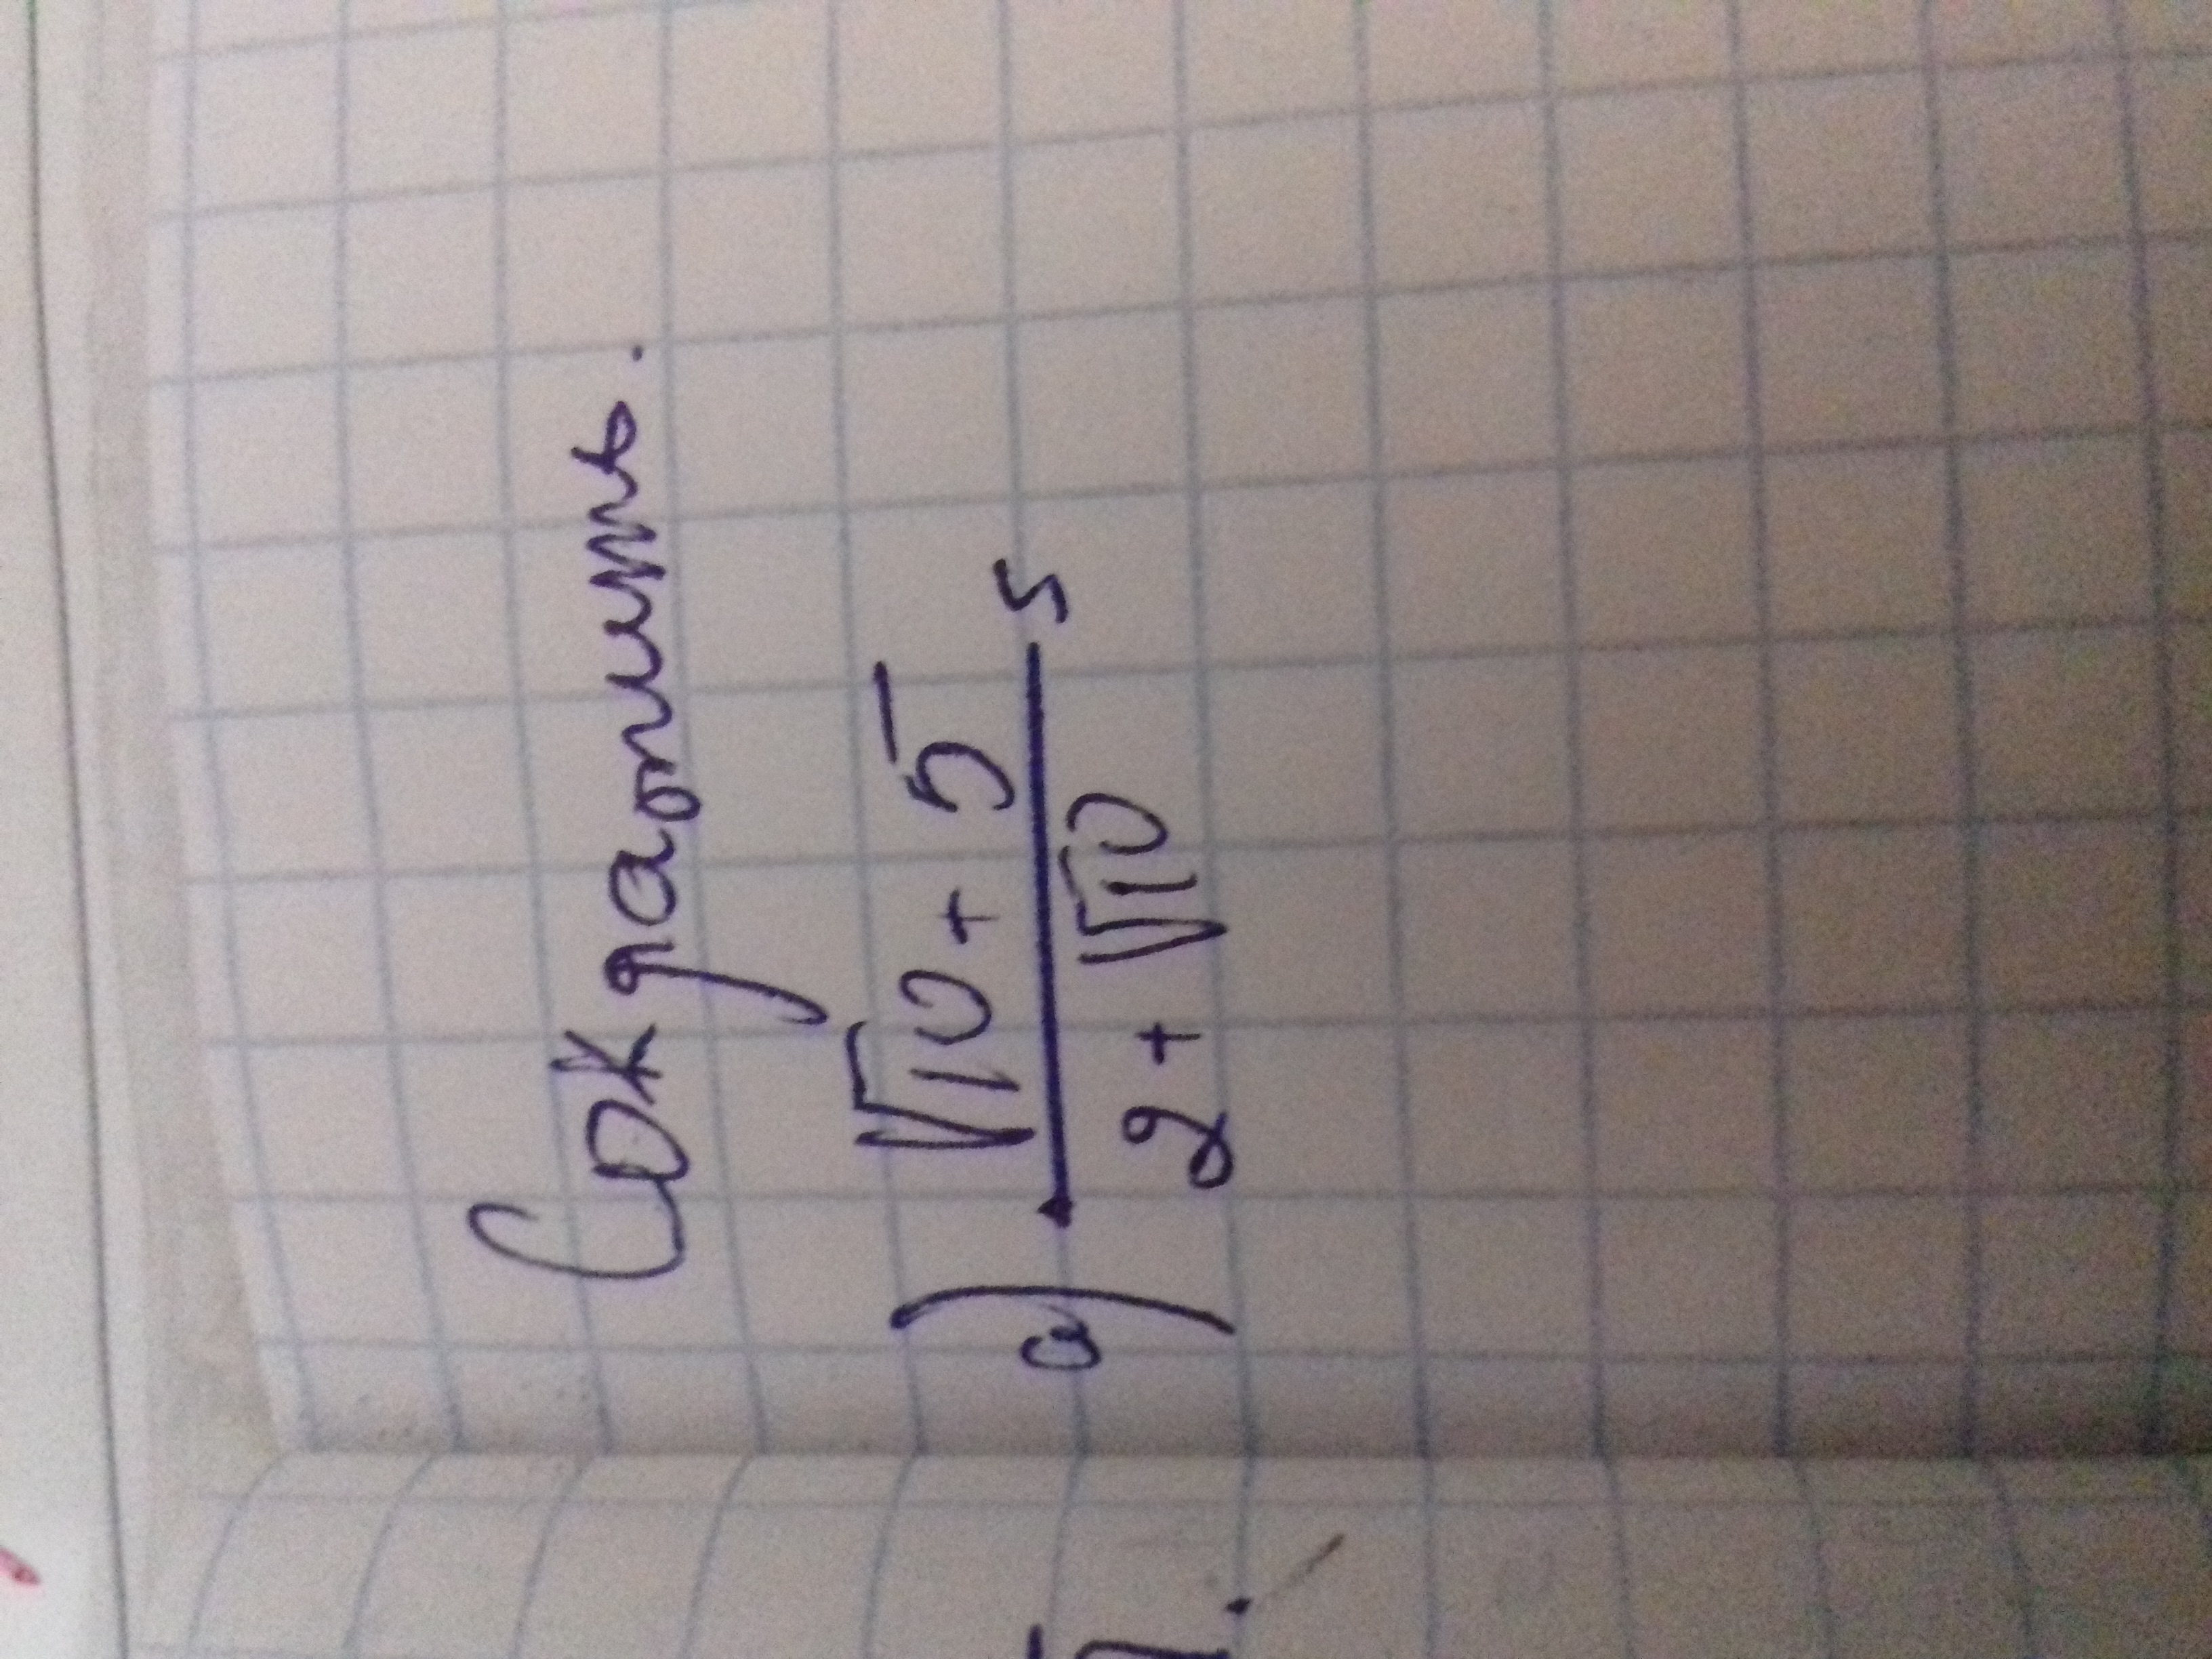 Сократить.
а) √10 + 5
2 + √10
5